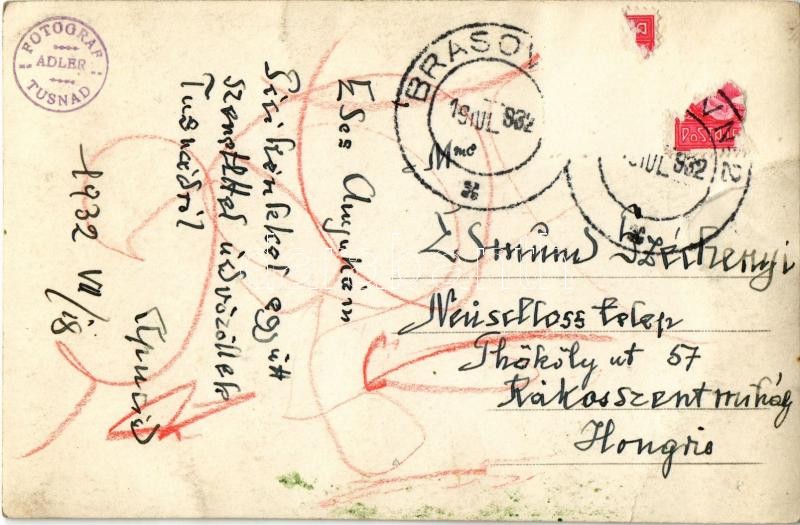 FOTOGRAF
ADLER
TUSNAD
Édes Anyukám
Siriképekkel együtt
szeretettel üdvözöllek
Tusnádról
1932 VII/18
BRASOV
19 IUL 932
IUL 932
POSTA
Mme
Edmund Széchenyi
Neuschloss telep
Thököly ut 57
Rákosszentmihály
Hongrie